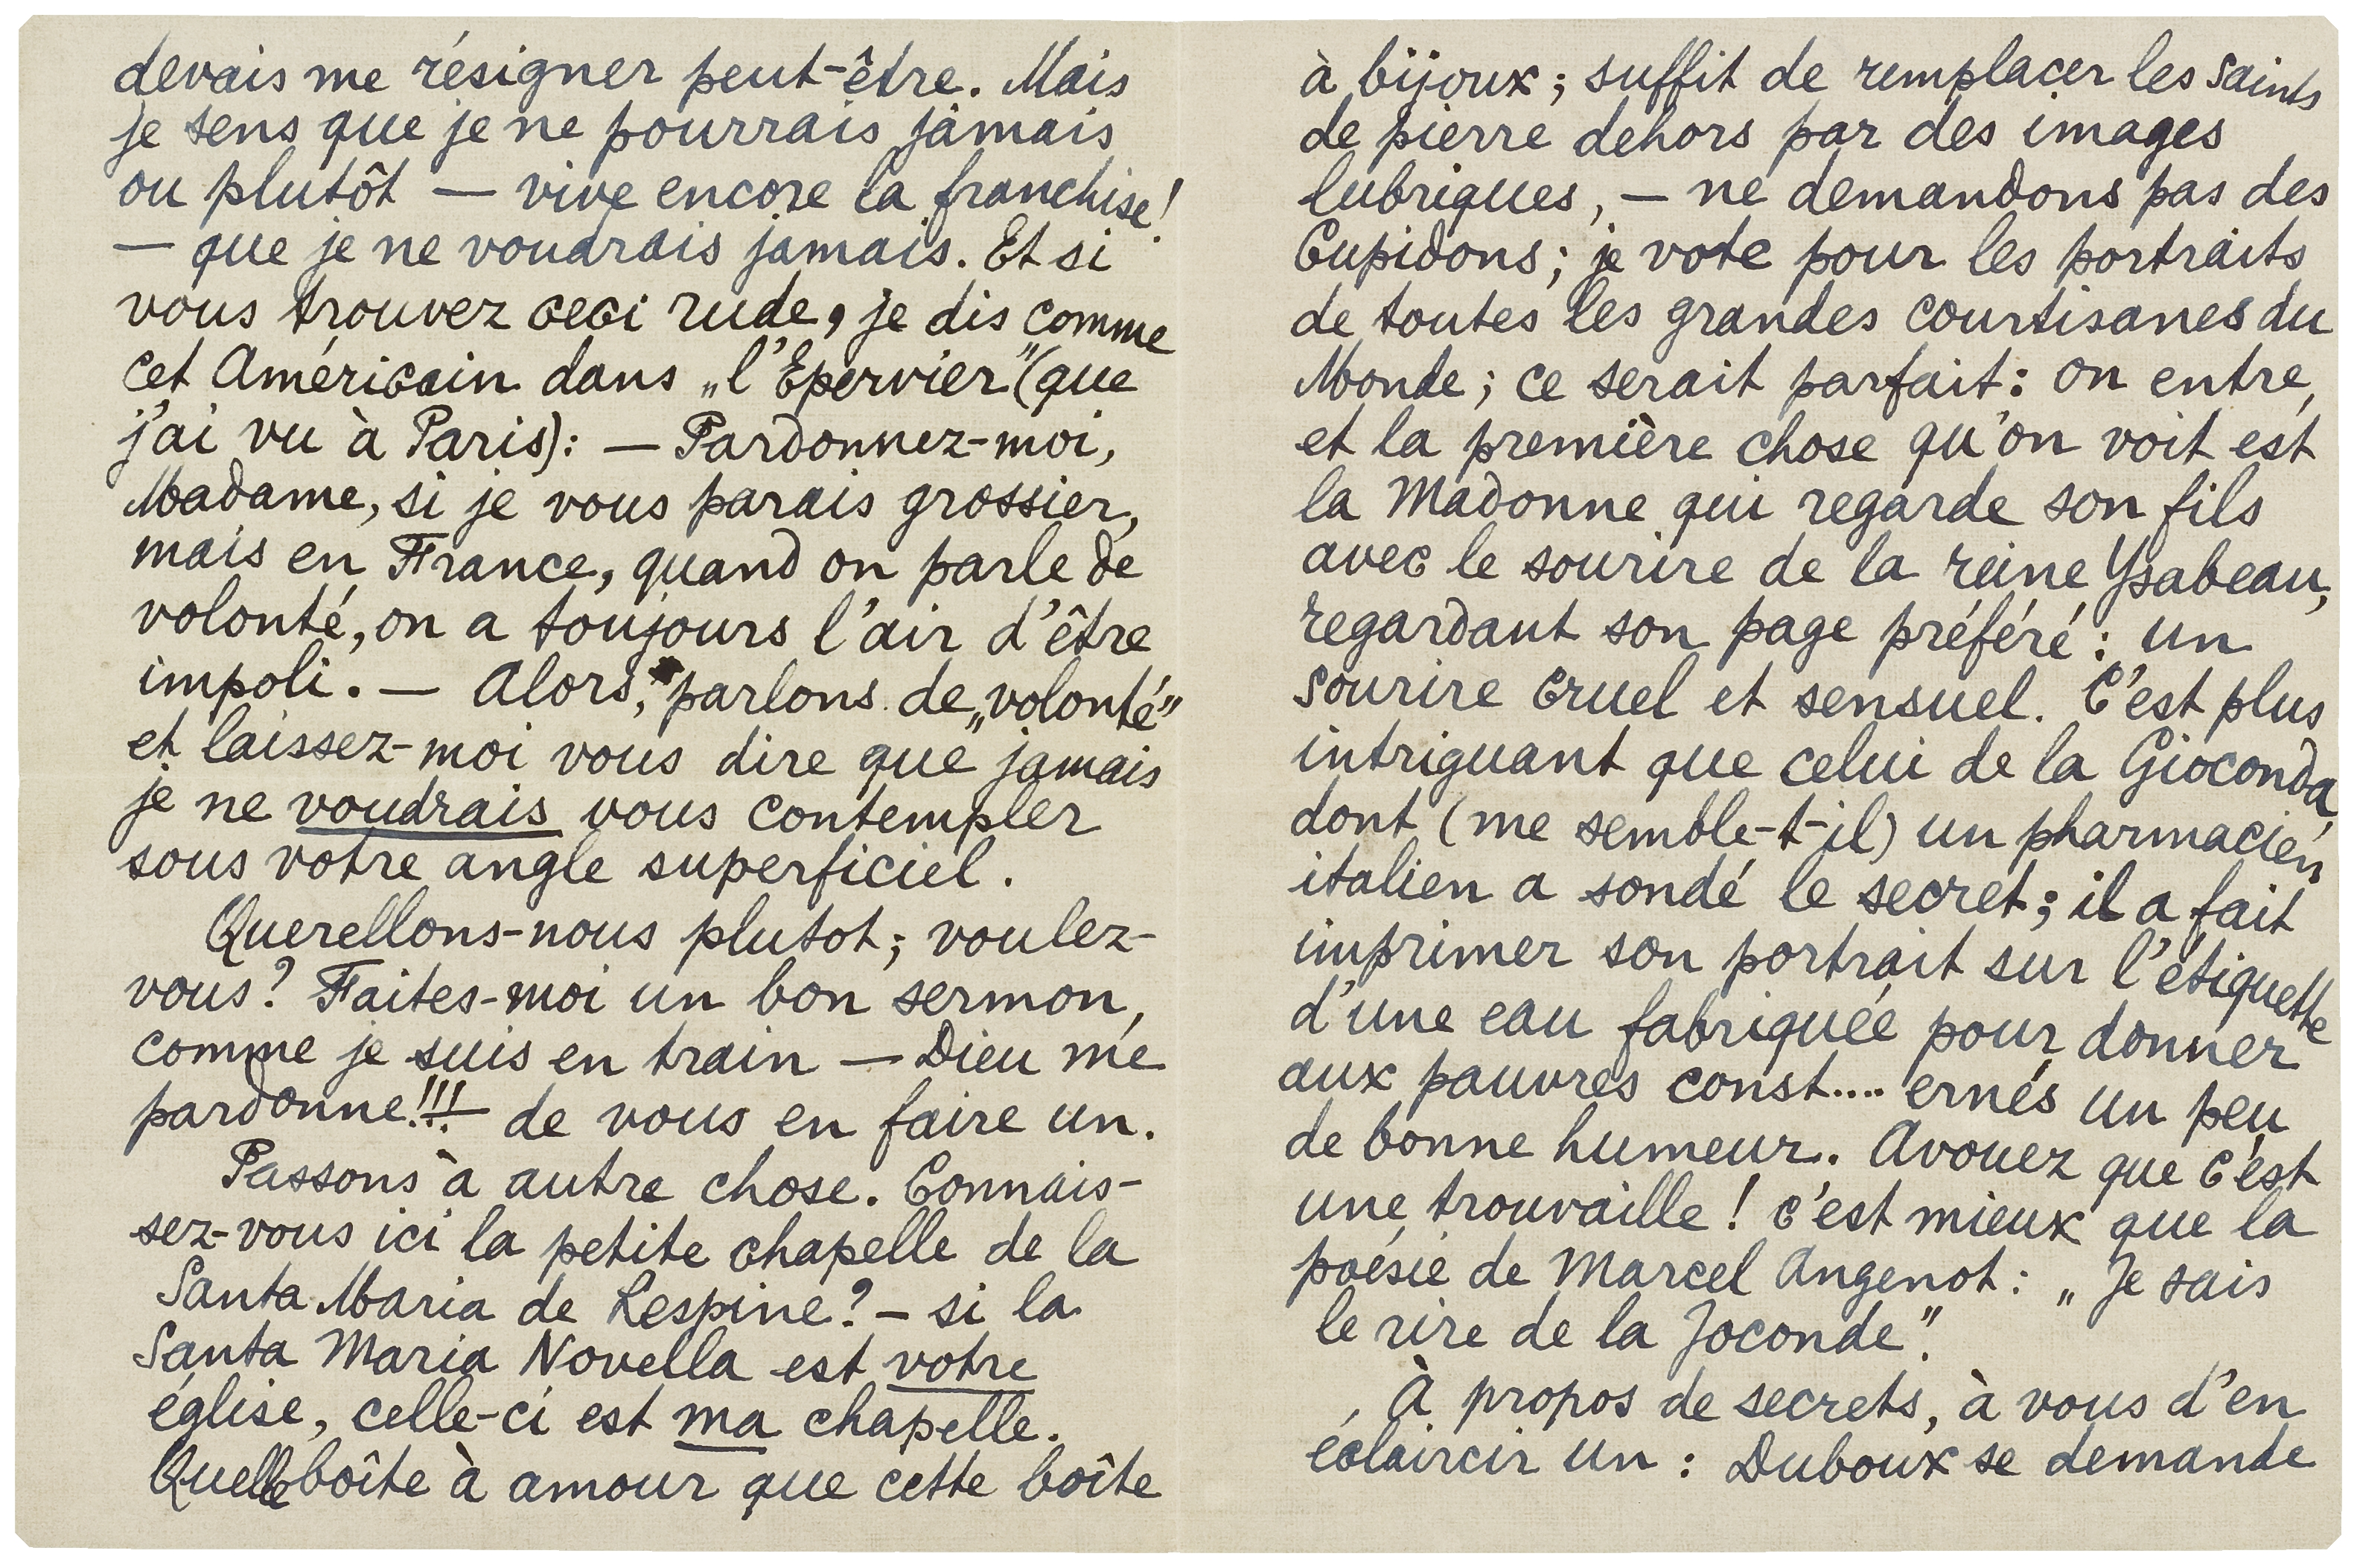 devais me résigner peut-être. Mais
je sens que je ne pourrais jamais
ou plutôt — vive encore la franchise!
— que je ne voudrais jamais. Et si
vous trouvez ceci rude, je dis comme
cet Américain dans „l'Epervier" (que
j'ai vu à Paris): — Pardonnez-moi,
Madame, si je vous parais grossier,
mais en France, quand on parle de
volonté, on a toujours l'air d'être
impoli. — Alors, parlons de „volonté"
et laissez-moi vous dire que jamais
je ne voudrais vous contempler
sous votre angle superficiel.
Querellons-nous plutot; voulez-
vous? Faites-moi un bon sermon,
comme je suis en train — Dieu me
pardonne!!! — de vous en faire un.
Passons à autre chose. Connais-
sez-vous ici la petite chapelle de la
Santa Maria de Lespine? — si la
Santa Maria Novella est votre
église, celle-ci est ma chapelle.
Quelle boîte à amour que cette boîte
à bijoux; suffit de remplacer les saints
de pierre dehors par des images
lubriques, — ne demandons pas des
Cupidons; je vote pour les portraits
de toutes les grandes courtisanes du
Monde; ce serait parfait: on entre,
et la première chose qu'on voit est
la Madonne qui regarde son fils
avec le sourire de la reine Ysabeau,
regardant son page préféré: un
sourire cruel et sensuel. C'est plus
intriguant que celui de la Gioconda,
dont (me semble-t-il) un pharmacien
italien a sondé le secret; il a fait
imprimer son portrait sur l'étiquette
d'une eau fabriquée pour donner
aux pauvres const.... ernés un peu
de bonne humeur. Avouez que c'est
une trouvaille! c'est mieux que la
poésie de Marcel Angenot: „Je sais
le rire de la Joconde".
À propos de secrets, à vous d'en
éclaircir un: Duboux se demande